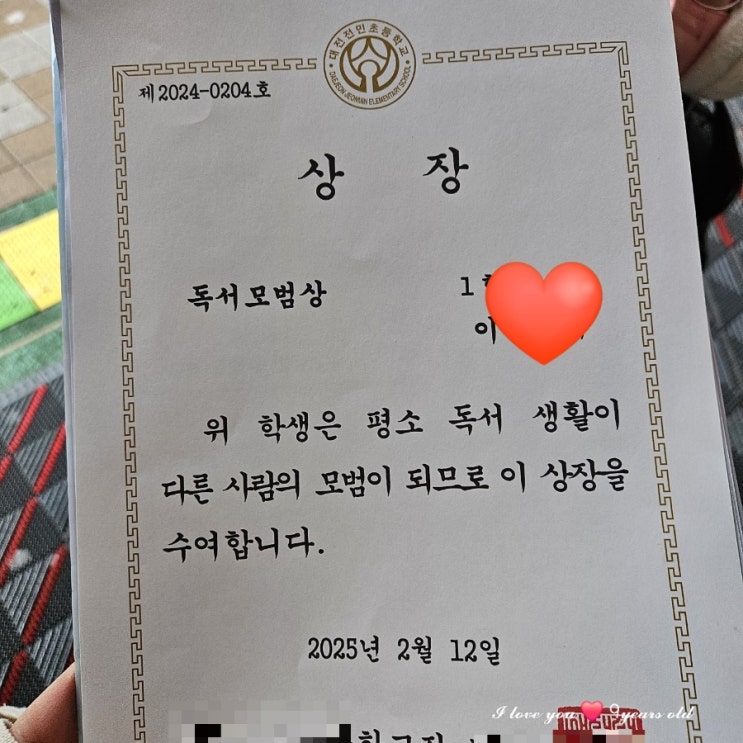 대전전민초등학교
DAEJEON JEONMIN ELEMENTARY SCHOOL
제2024-0204호
상 장
독서모범상 1
이
위 학생은 평소 독서 생활이
다른 사람의 모범이 되므로 이 상장을
수여합니다.
2025년 2월 12일
I love you ❤ 9years old